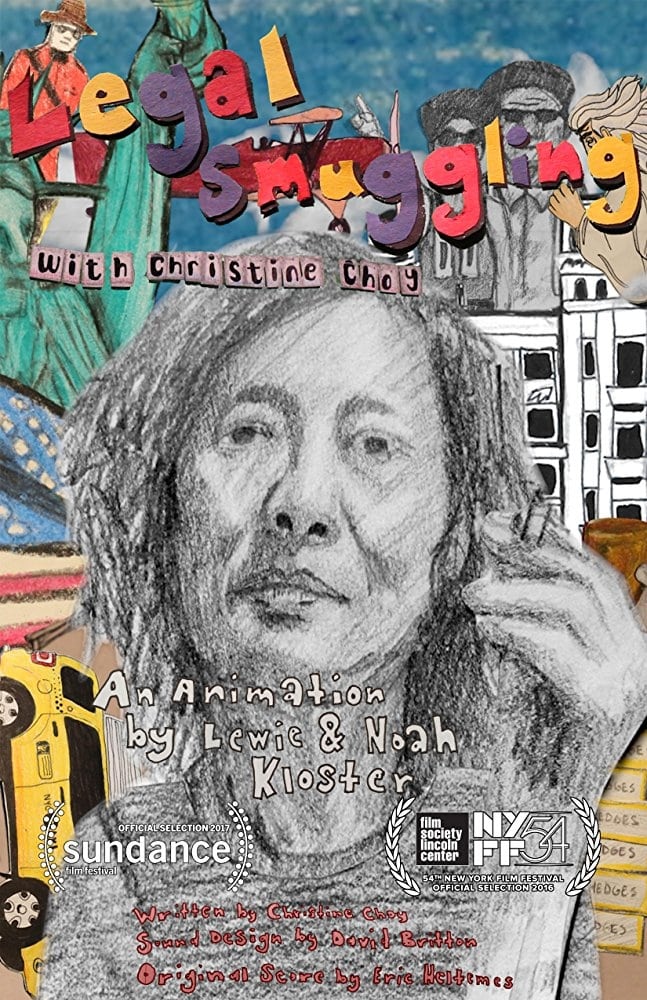 Legal
Smuggling
with Christine Choy
An Animation
by Lewie & Noah
Kloster
OFFICIAL SELECTION 2017
sundance
film festival
film
society
lincoln
center
NYFF54
54TH NEW YORK FILM FESTIVAL
OFFICIAL SELECTION 2016
EDGES
Written by Christine Choy
Sound Design by David Britton
Original Score by Eric Heltemes